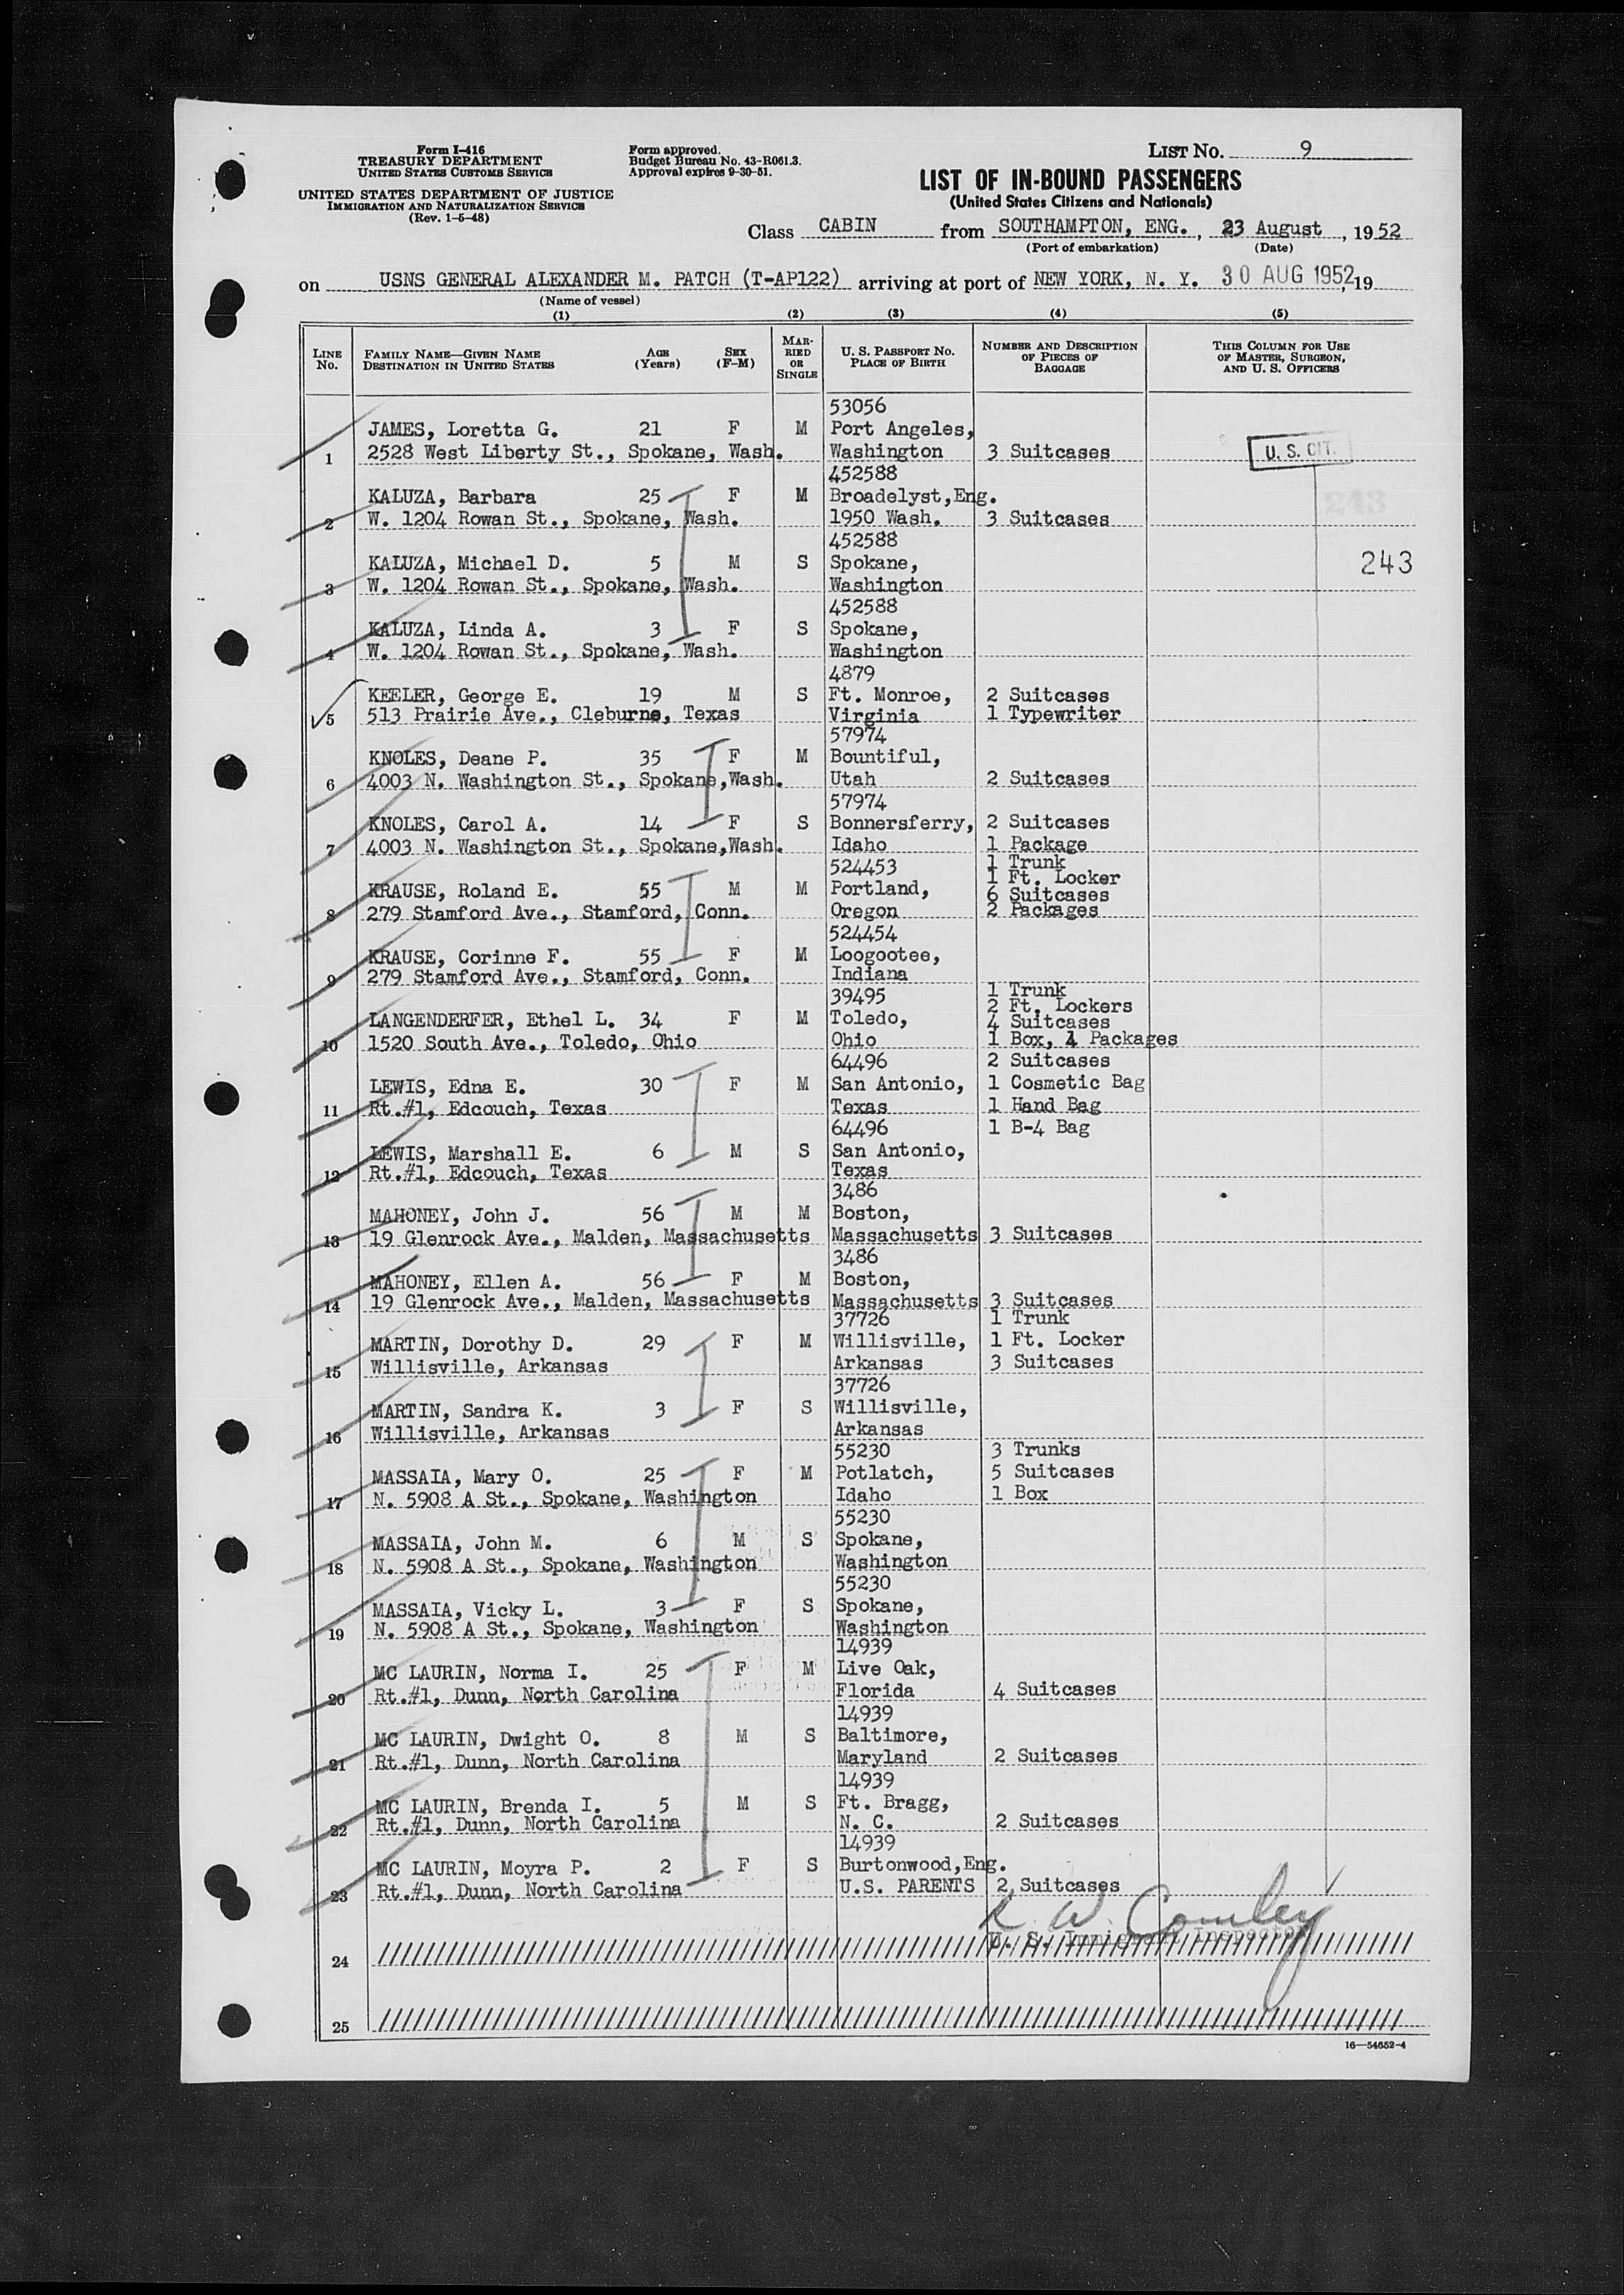 Form I-416
TREASURY DEPARTMENT
UNITED STATES CUSTOMS SERVICE
UNITED STATES DEPARTMENT OF JUSTICE
IMMIGRATION AND NATURALIZATION SERVICE
(Rev. 1-5-48)
Form approved.
Budget Bureau No. 43-R061.3.
Approval expires 9-30-51.
LIST No. 9
LIST OF IN-BOUND PASSENGERS
(United States Citizens and Nationals)
Class CABIN from SOUTHAMPTON, ENG., 23 August, 1952
(Port of embarkation) (Date)
on USNS GENERAL ALEXANDER M. PATCH (T-AP122) arriving at port of NEW YORK, N. Y. 30 AUG 1952,19
(Name of vessel)
(1) (2) (3) (4) (5)
LINE No.
FAMILY NAME—GIVEN NAME
DESTINATION IN UNITED STATES
AGE (Years)
SEX (F-M)
MARRIED OR SINGLE
U. S. PASSPORT NO.
PLACE OF BIRTH
NUMBER AND DESCRIPTION OF PIECES OF BAGGAGE
THIS COLUMN FOR USE OF MASTER, SURGEON, AND U. S. OFFICERS
53056
JAMES, Loretta G. 21 F M Port Angeles,
1 2528 West Liberty St., Spokane, Wash. Washington 3 Suitcases U. S. CIT.
452588
KALUZA, Barbara 25 F M Broadelyst,Eng.
2 W. 1204 Rowan St., Spokane, Wash. 1950 Wash. 3 Suitcases 243
452588
KALUZA, Michael D. 5 M S Spokane, 243
3 W. 1204 Rowan St., Spokane, Wash. Washington
452588
KALUZA, Linda A. 3 F S Spokane,
4 W. 1204 Rowan St., Spokane, Wash. Washington
4879
KEELER, George E. 19 M S Ft. Monroe, 2 Suitcases
5 513 Prairie Ave., Cleburne, Texas Virginia 1 Typewriter
57974
KNOLES, Deane P. 35 F M Bountiful,
6 4003 N. Washington St., Spokane,Wash. Utah 2 Suitcases
57974
KNOLES, Carol A. 14 F S Bonnersferry, 2 Suitcases
7 4003 N. Washington St., Spokane,Wash. Idaho 1 Package
524453 1 Trunk
1 Ft. Locker
KRAUSE, Roland E. 55 M M Portland, 6 Suitcases
8 279 Stamford Ave., Stamford, Conn. Oregon 2 Packages
524454
KRAUSE, Corinne F. 55 F M Loogootee,
9 279 Stamford Ave., Stamford, Conn. Indiana
39495 1 Trunk
2 Ft. Lockers
LANGENDERFER, Ethel L. 34 F M Toledo, 4 Suitcases
10 1520 South Ave., Toledo, Ohio Ohio 1 Box, 4 Packages
64496 2 Suitcases
LEWIS, Edna E. 30 F M San Antonio, 1 Cosmetic Bag
11 Rt.#1, Edcouch, Texas Texas 1 Hand Bag
64496 1 B-4 Bag
LEWIS, Marshall E. 6 M S San Antonio,
12 Rt.#1, Edcouch, Texas Texas
3486
MAHONEY, John J. 56 M M Boston,
13 19 Glenrock Ave., Malden, Massachusetts Massachusetts 3 Suitcases
3486
MAHONEY, Ellen A. 56 F M Boston,
14 19 Glenrock Ave., Malden, Massachusetts Massachusetts 3 Suitcases
37726 1 Trunk
MARTIN, Dorothy D. 29 F M Willisville, 1 Ft. Locker
15 Willisville, Arkansas Arkansas 3 Suitcases
37726
MARTIN, Sandra K. 3 F S Willisville,
16 Willisville, Arkansas Arkansas
55230 3 Trunks
MASSAIA, Mary O. 25 F M Potlatch, 5 Suitcases
17 N. 5908 A St., Spokane, Washington Idaho 1 Box
55230
MASSAIA, John M. 6 M S Spokane,
18 N. 5908 A St., Spokane, Washington Washington
55230
MASSAIA, Vicky L. 3 F S Spokane,
19 N. 5908 A St., Spokane, Washington Washington
14939
MC LAURIN, Norma I. 25 F M Live Oak,
20 Rt.#1, Dunn, North Carolina Florida 4 Suitcases
14939
MC LAURIN, Dwight O. 8 M S Baltimore,
21 Rt.#1, Dunn, North Carolina Maryland 2 Suitcases
14939
MC LAURIN, Brenda I. 5 M S Ft. Bragg,
22 Rt.#1, Dunn, North Carolina N. C. 2 Suitcases
14939
MC LAURIN, Moyra P. 2 F S Burtonwood,Eng.
23 Rt.#1, Dunn, North Carolina U.S. PARENTS 2 Suitcases
U. S. Immigrant Inspector
24
25
16—54652-4